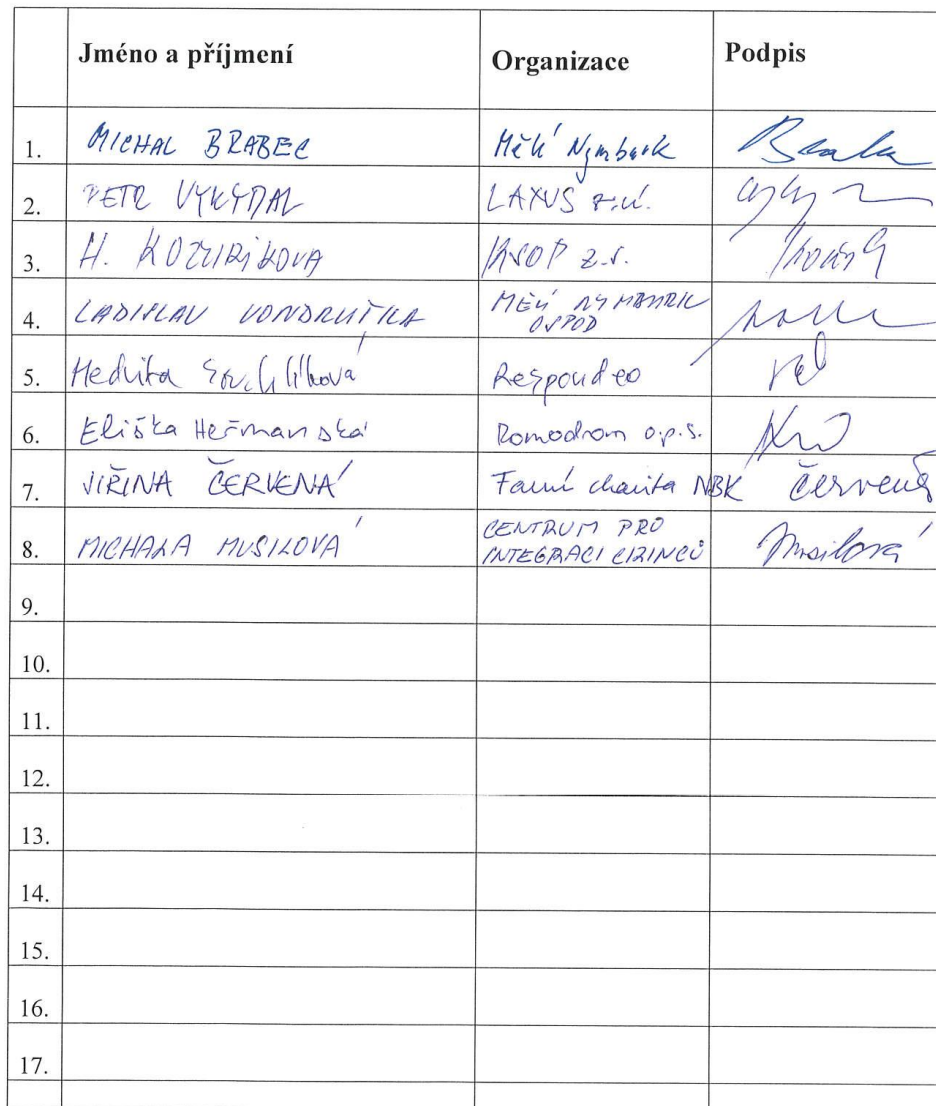 Jméno a příjmení Organizace Podpis
1. MICHAL BRABEC MěÚ Nymburk
2. PETR VYKYDAL LAXUS z.ú.
3. H. z.s.
4. LADISLAV VONDRUŠKA MĚÚ NYMBURK
OSPOD
5. Hedvika Respondeo
6. Eliška Heřmanská Romodrom o.p.s.
7. JIŘINA ČERVENÁ Farní charita NBK Červená
8. MICHALA MUSILOVÁ CENTRUM PRO
INTEGRACI CIZINCŮ Musilová
9.
10.
11.
12.
13.
14.
15.
16.
17.